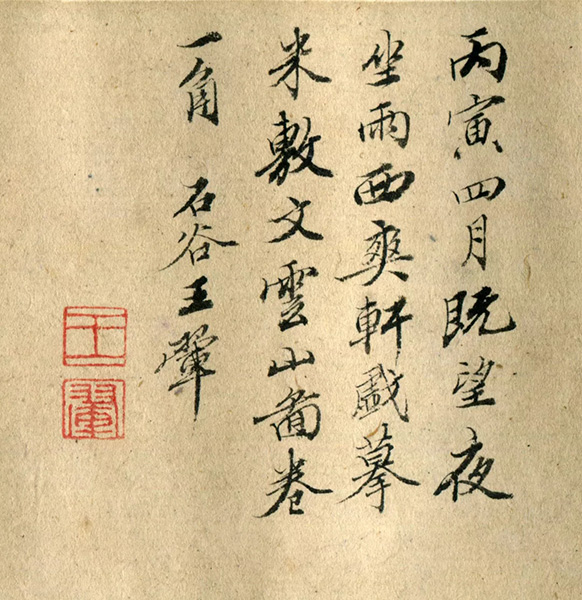 丙寅四月既望夜
坐雨西爽軒戲摹
米敷文雲山圖卷
一角 石谷王翬
王
翬